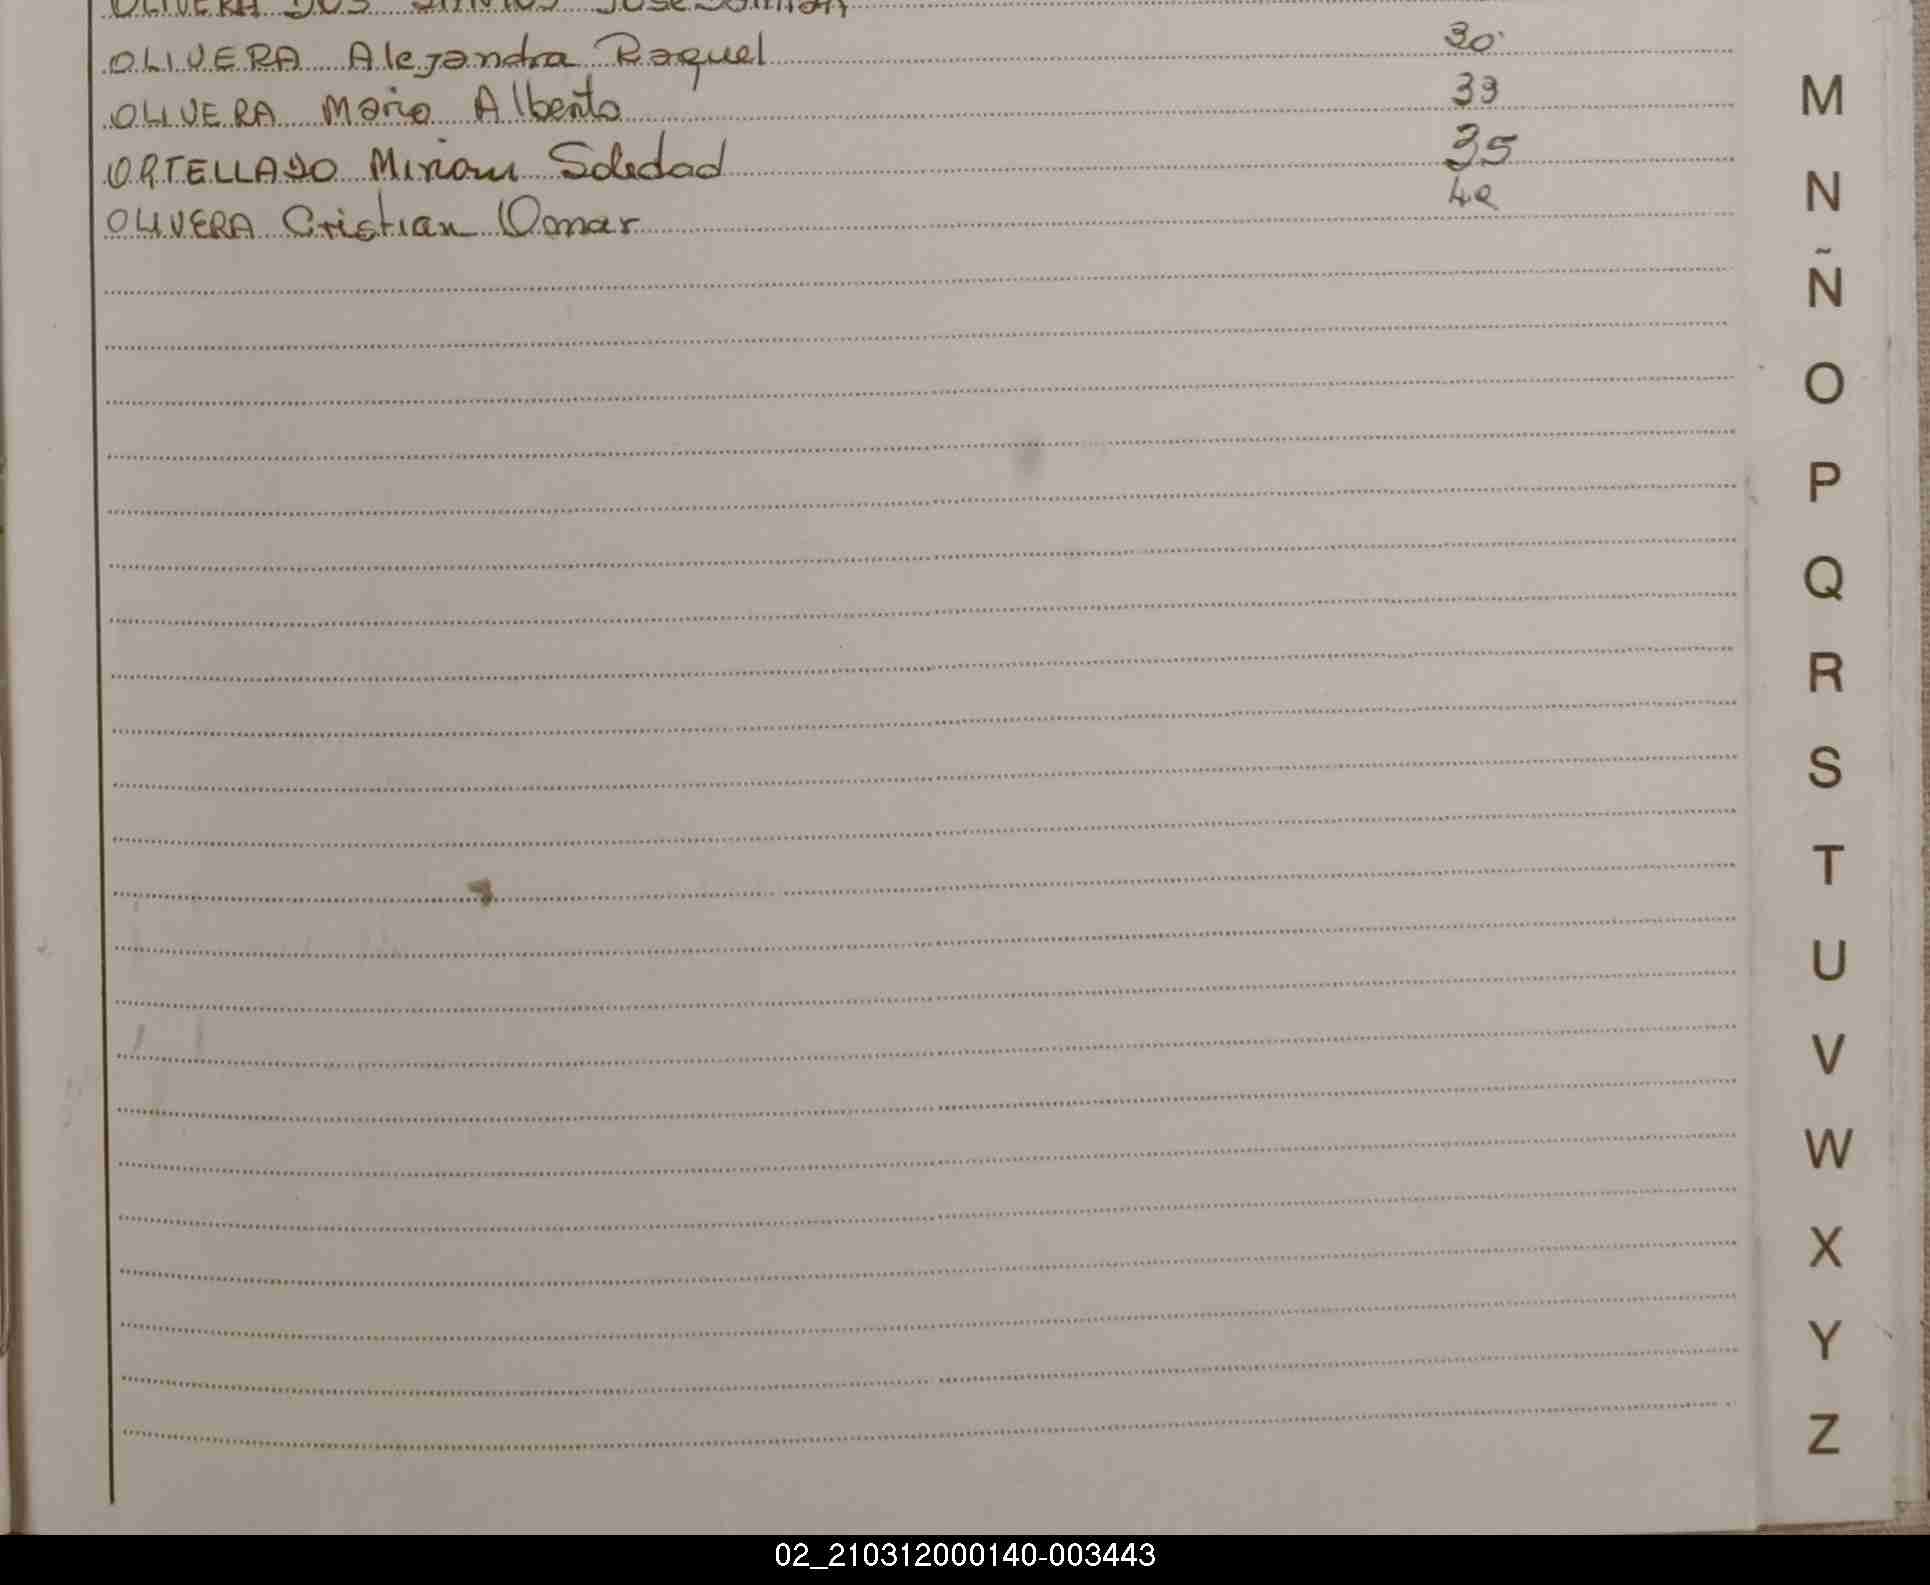 OLIVERA DOS SANTOS José Damián
OLIVERA Alejandra Raquel 30
OLIVERA Mario Alberto 33
ORTELLADO Miriam Soledad 35
OLIVERA Cristian Omar
M
N
Ñ
O
P
Q
R
S
T
U
V
W
X
Y
Z
02_210312000140-003443